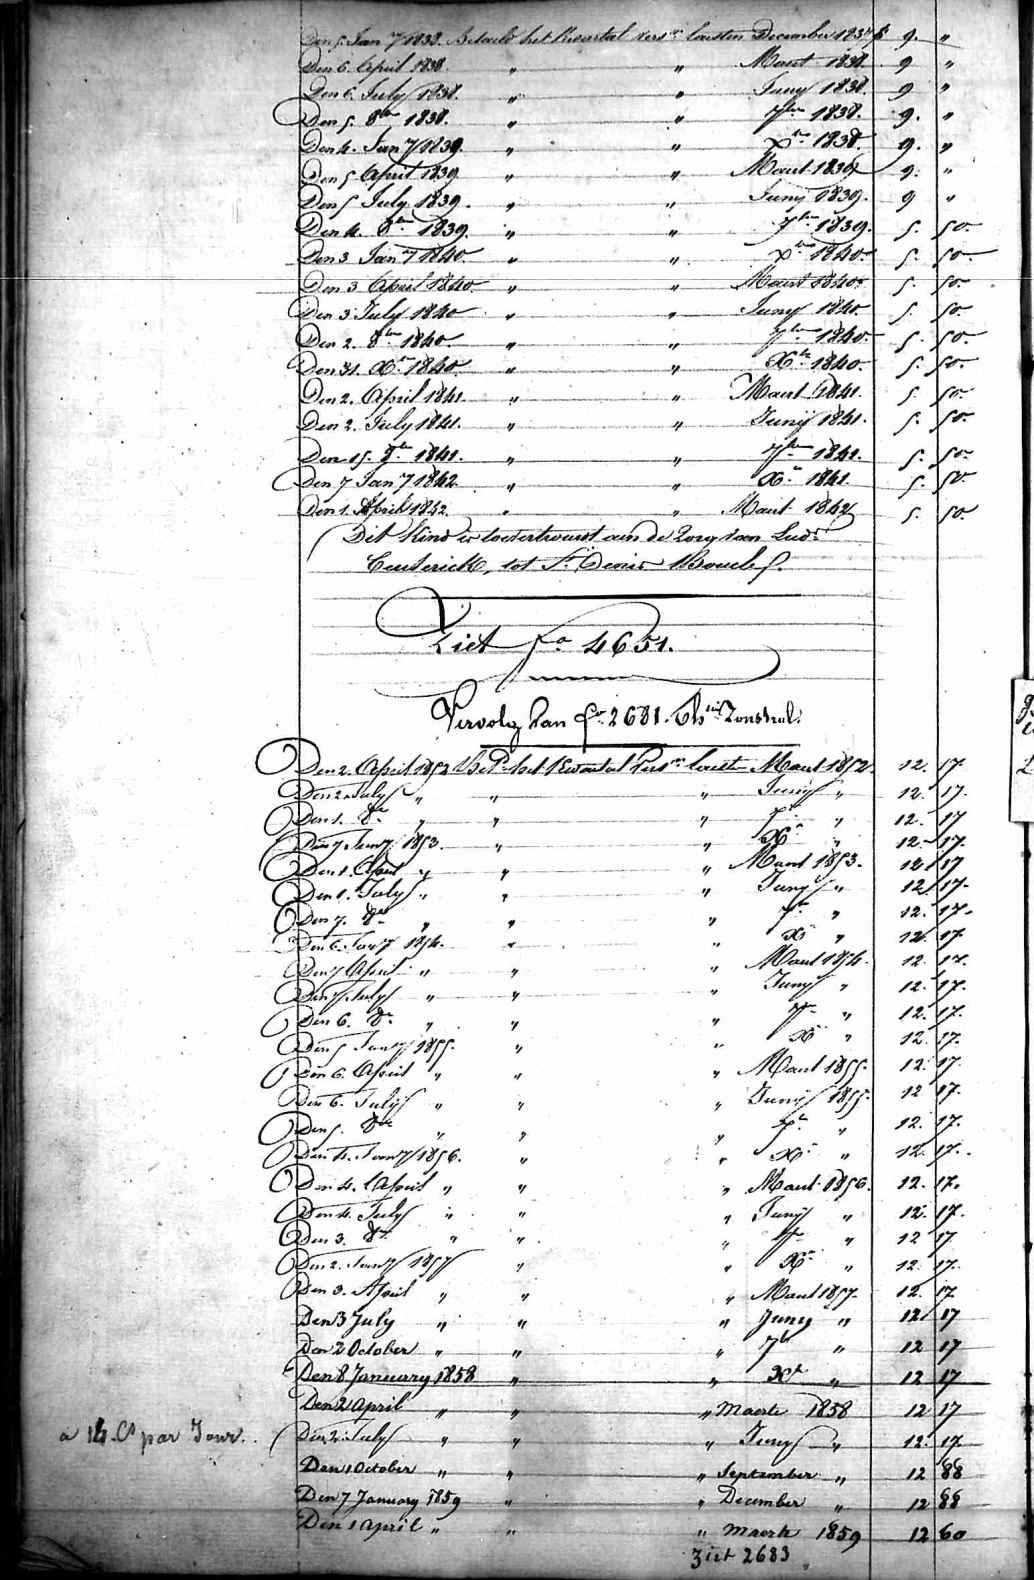 Den 5. Jan 7 1838. Betaeld het Kwartal vers.n lousten December 1837 f 9. "
Den 6. April 1838. " " Maart 1838. 9 "
Den 6. July 1838. " " Juny 1838. 9 "
Den 5. 8ber 1838. " " 7ber 1838. 9. "
Den 4. Jan 7 1839. " " Xber 1838. 9. "
Den 5 April 1839 " " Maart 1839 9. "
Den 5 July 1839. " " Juny 1839. 9 "
Den 4. 8ber 1839. " " 7ber 1839. 5. 50.
Den 3 Jan 7 1840. " " Xber 1840. 5. 50.
Den 3 April 1840. " " Maart 1840. 5. 50.
Den 3 July 1840 " " Juny 1840. 5. 50.
Den 2. 8ber 1840. " " 7ber 1840. 5. 50.
Den 31. Xber 1840. " " Xber 1840. 5. 50.
Den 2. April 1841. " " Maart 1841. 5 50.
Den 2. July 1841. " " Juny 1841. 5. 50.
Den 15. 8ber 1841. " " 7ber 1841. 5. 50.
Den 7 Jan 7 1842 " " Xber 1841. 5. 50.
Den 1. April 1842. " " Maart 1842 5. 50.
Dit Kind is toevertrouwt aen de Zorg van Lud.
tot St. Denis Boucle
Ziet fo 4651.
Vervolg van fo 2681. Zonstral.
Den 2. April 1852 het Kwartal vers.n lousten Maart 1852. 12. 17.
Den 2 July " " " Juny " 12. 17.
Den 1. 8ber " " " 7ber " 12. 17
Den 7 Jan 7 1853. " " Xber " 12. 17.
Den 1. April " " " Maart 1853. 12 17
Den 1. July " " " Juny " 12 17.
Den 7. 8ber " " " 7ber " 12. 17.
Den 6. Jan 7 1854. " " Xber " 12 17.
Den 7 April " " " Maart 1854. 12. 17.
Den 7 July " " " Juny " 12. 17.
Den 6. 8ber " " " 7ber " 12. 17.
Den 5 Jan 7 1855. " " Xber " 12. 17.
Den 6. April " " " Maart 1855. 12. 17.
Den 6. July " " " Juny 1855. 12 17.
Den 5. 8ber " " " 7ber " 12. 17.
Den 4. Jan 7 1856. " " Xber " 12. 17.
Den 4. April " " " Maart 1856. 12. 17.
Den 4. July " " " Juny " 12. 17.
Den 3. 8ber " " " 7ber " 12 17
Den 2. Jan 7 1857 " " Xber " 12. 17.
Den 3. April " " " Maart 1857. 12. 17
Den 3 July " " " Juny " 12 17
Den 2 October " " " 7br " 12 17
Den 8 January 1858 " " Xbr " 12 17
Den 2 April " " " Maerte 1858 12 17
a 14. Cs par Jour. Den 2. July " " " Juny " 12. 17
Den 1 October " " " September " 12 88
Den 7 January 1859 " " December " 12 88
Den 1 April " " " Maerte 1859 12 60
Ziet 2683